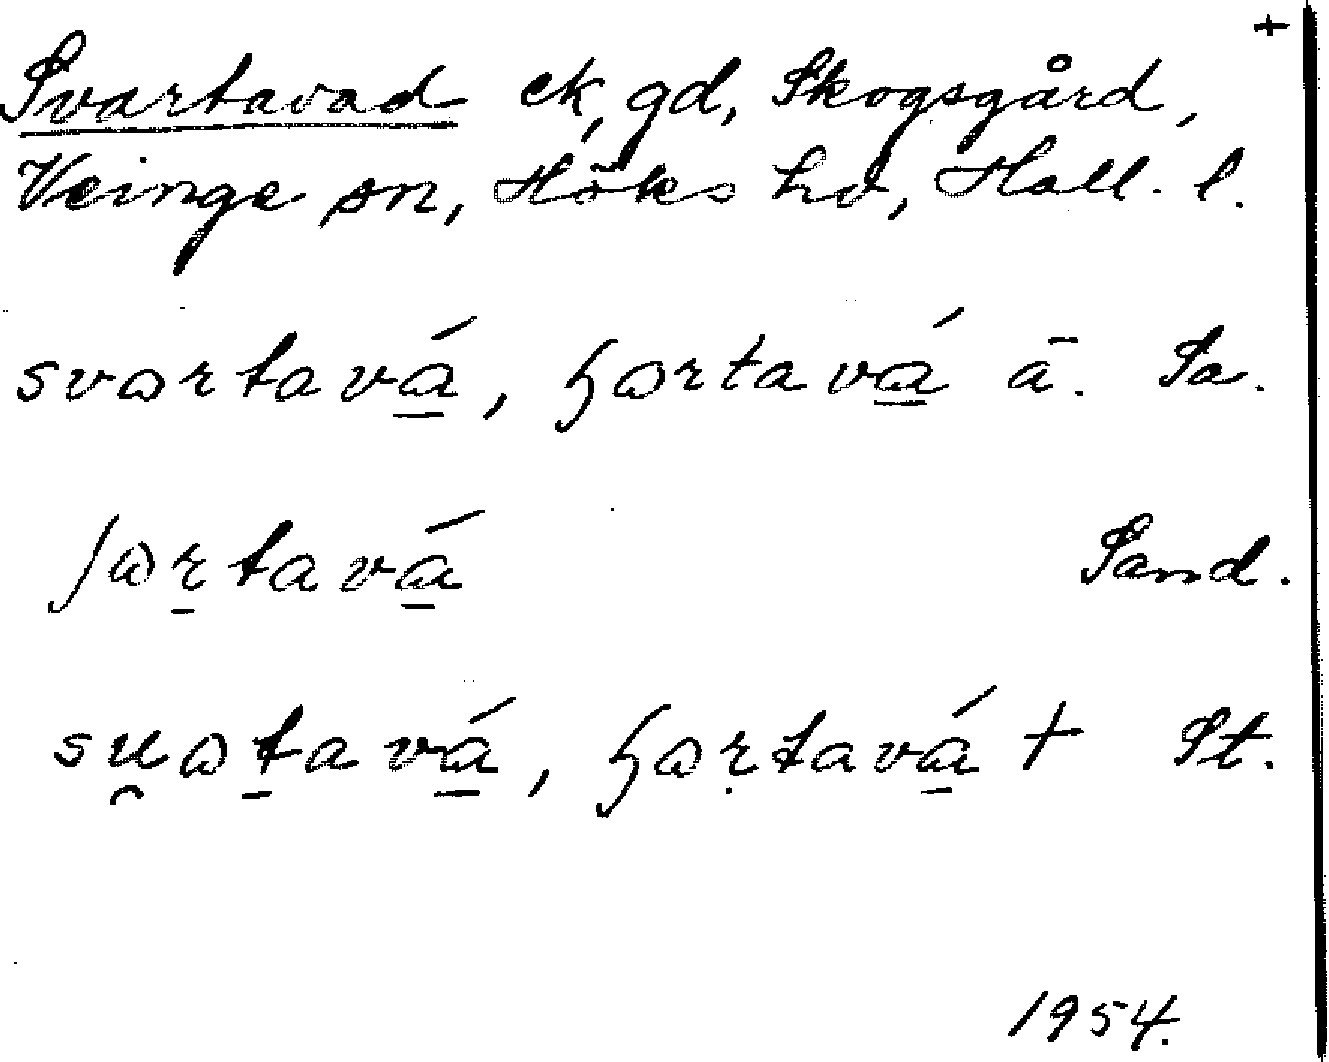 +
Svartavad ek, gd, Skogsgård,
Veinge sn, Höks hd, Hall. l.
svɷrtavá̲, ɧɷrtavá̲ ā. Sa.
ʃɷr̲tavá̲ Sand.
su̯ɷt̲avá̲, ɧɷṛtavá̲ † St.
1954.